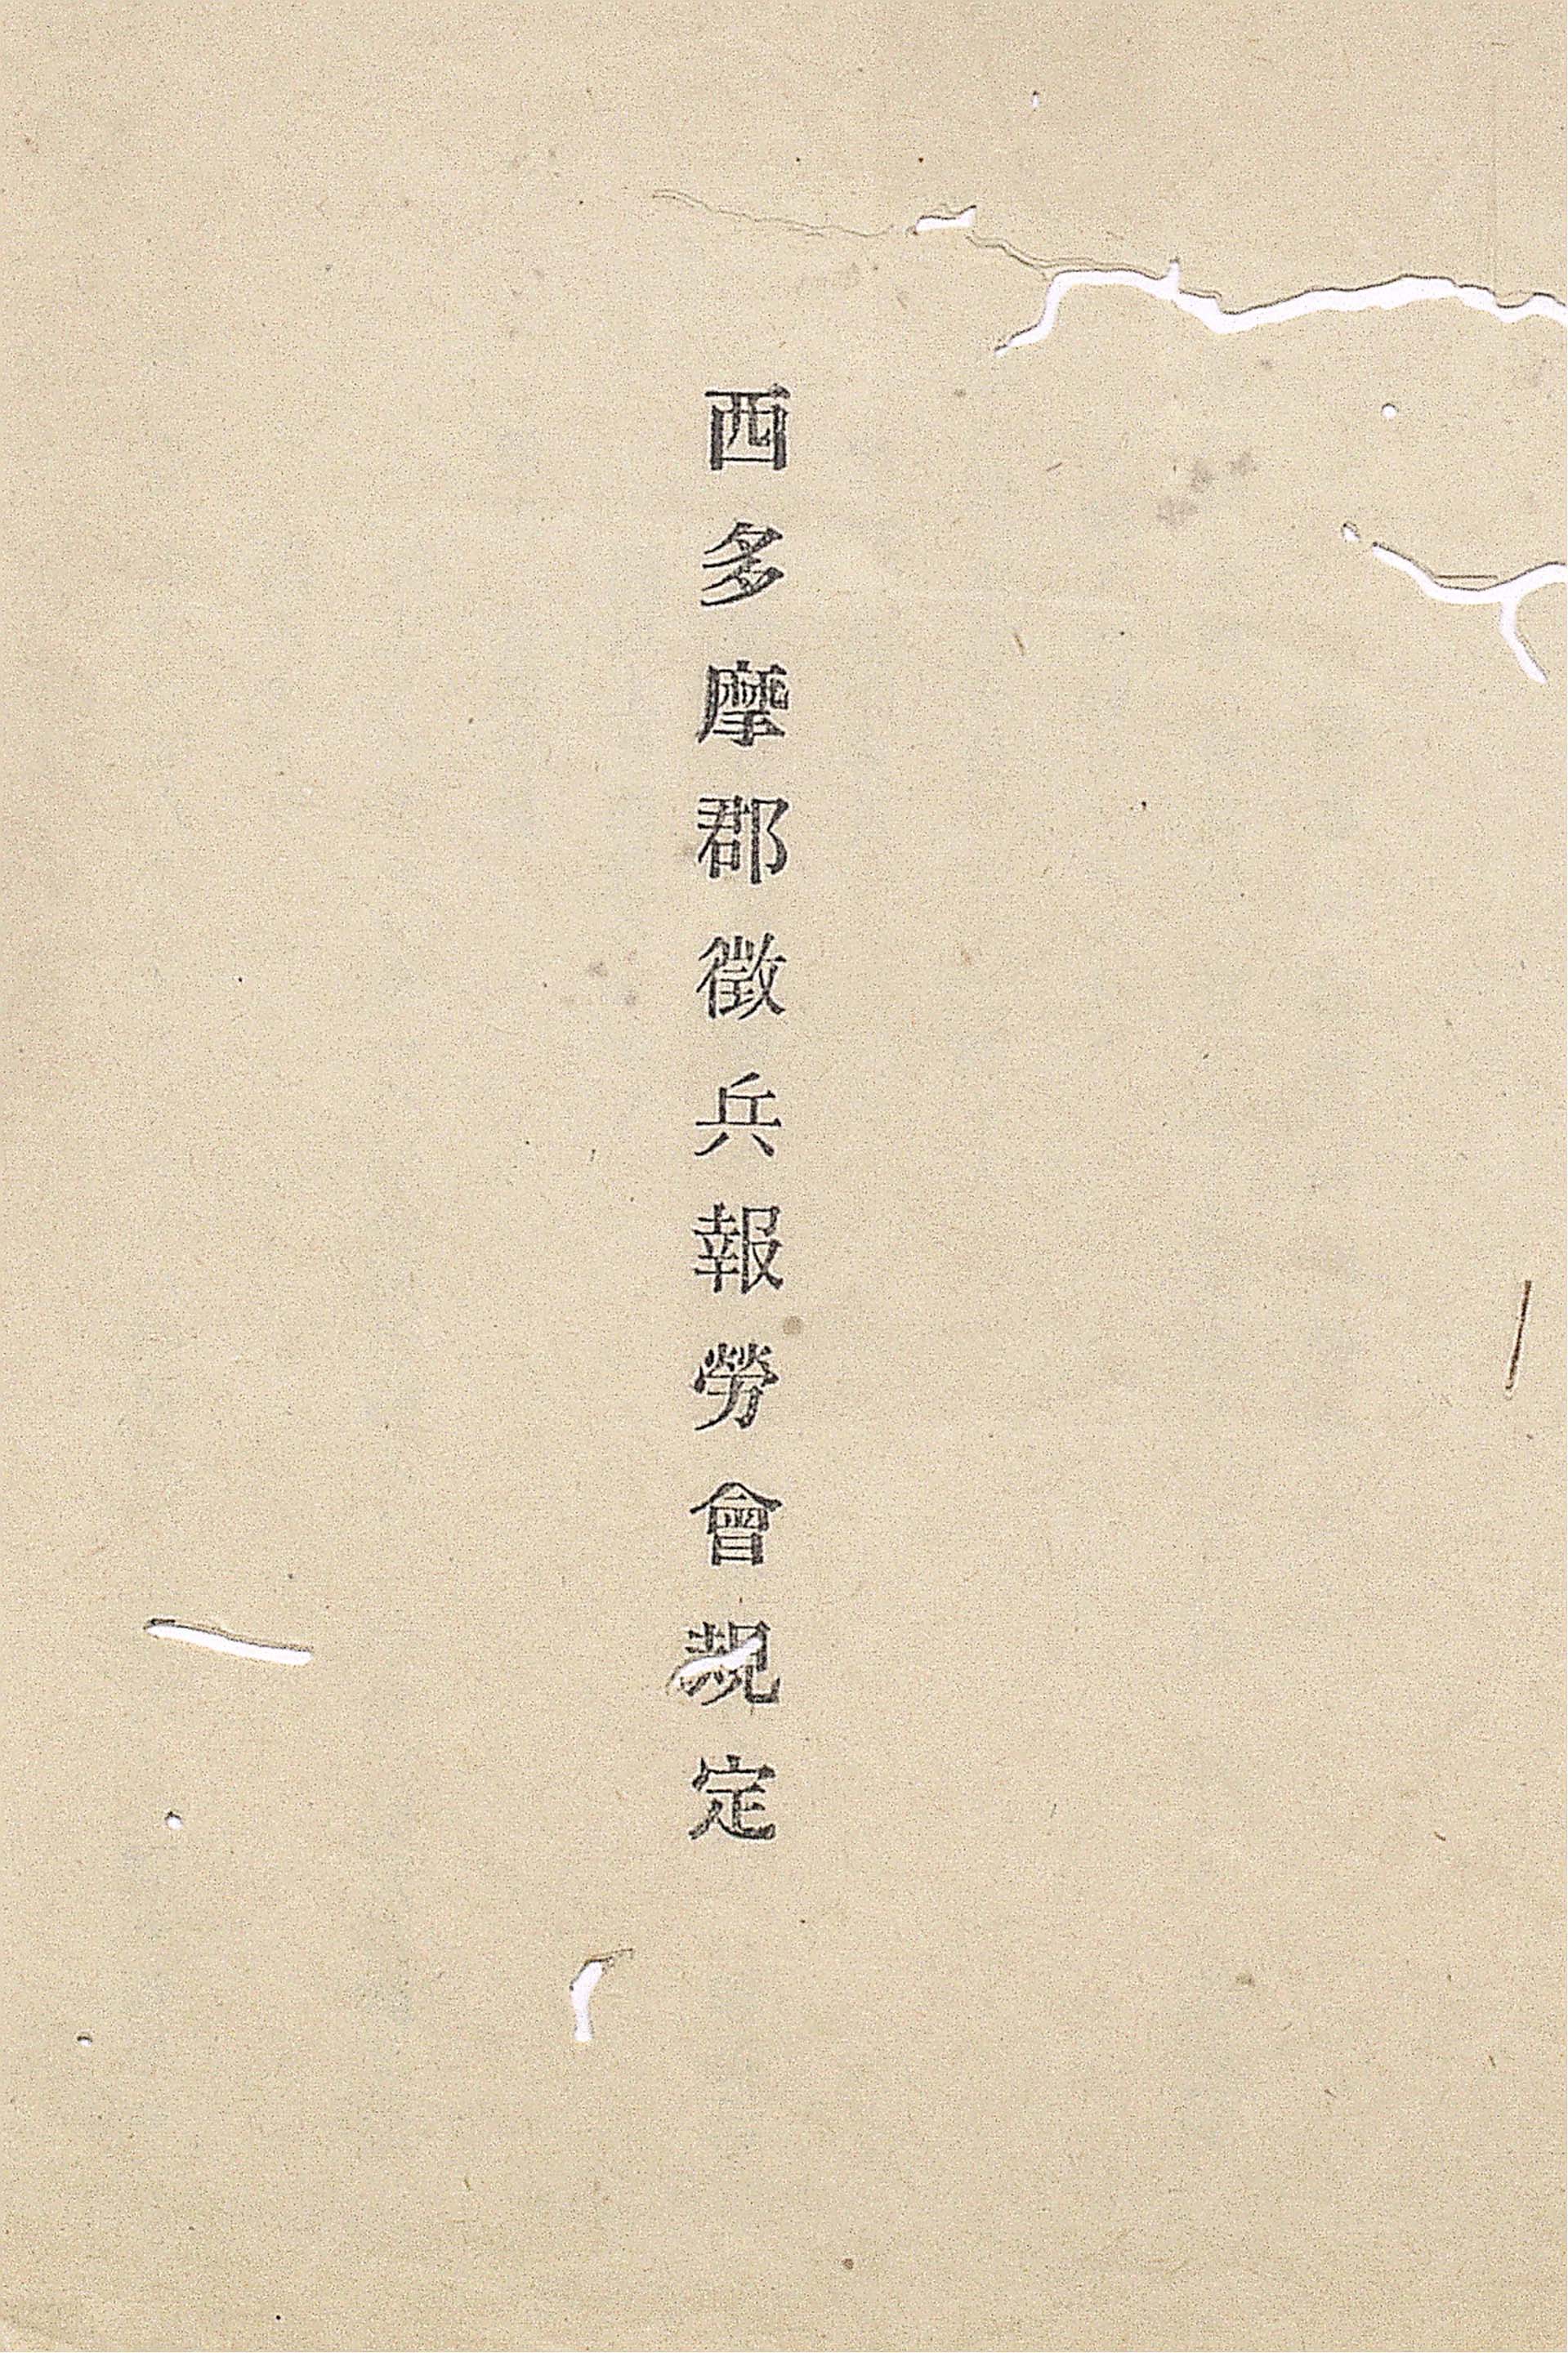 西多摩郡徴兵報勞會規定